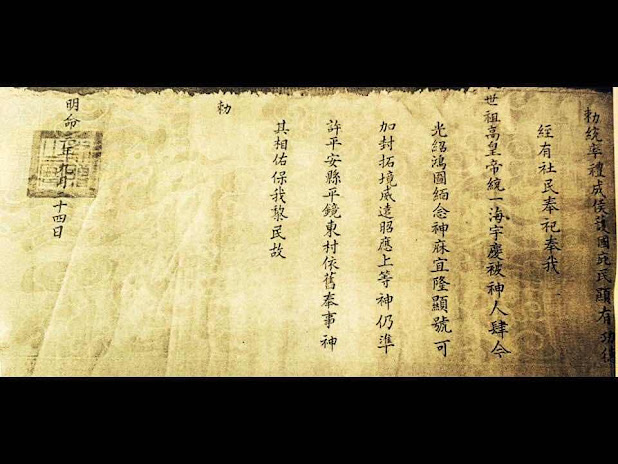 勅統率禮成侯護國庇民顯有功德
經有社民奉祀奉我
世祖高皇帝統一海宇慶被神人肆今
光紹鴻圖緬念神庥宜隆顯號可
加封拓境威遠昭應上等神仍準
許平安縣平鏡東村依舊奉事神
其相佑保我黎民故
勅
明命三年九月二十四日